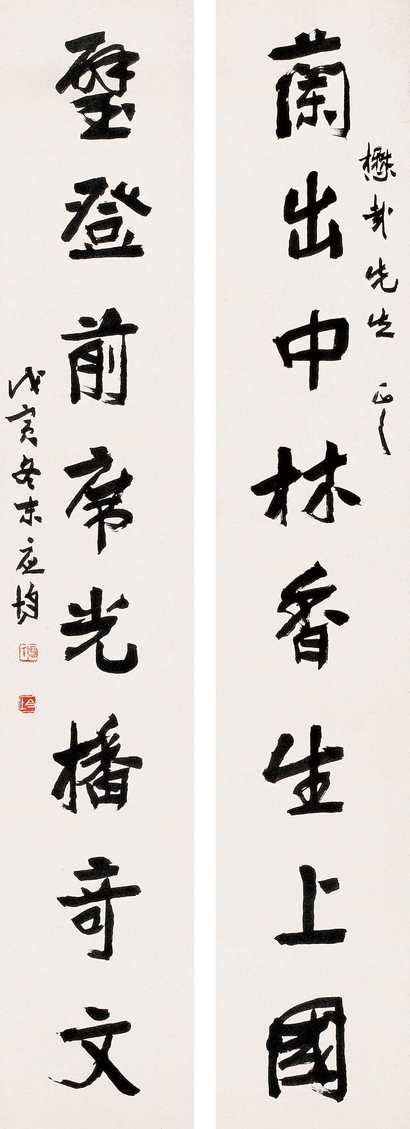 懋卦先生正之
蘭出中林香生上國
璧登前席光播奇文
戊寅冬